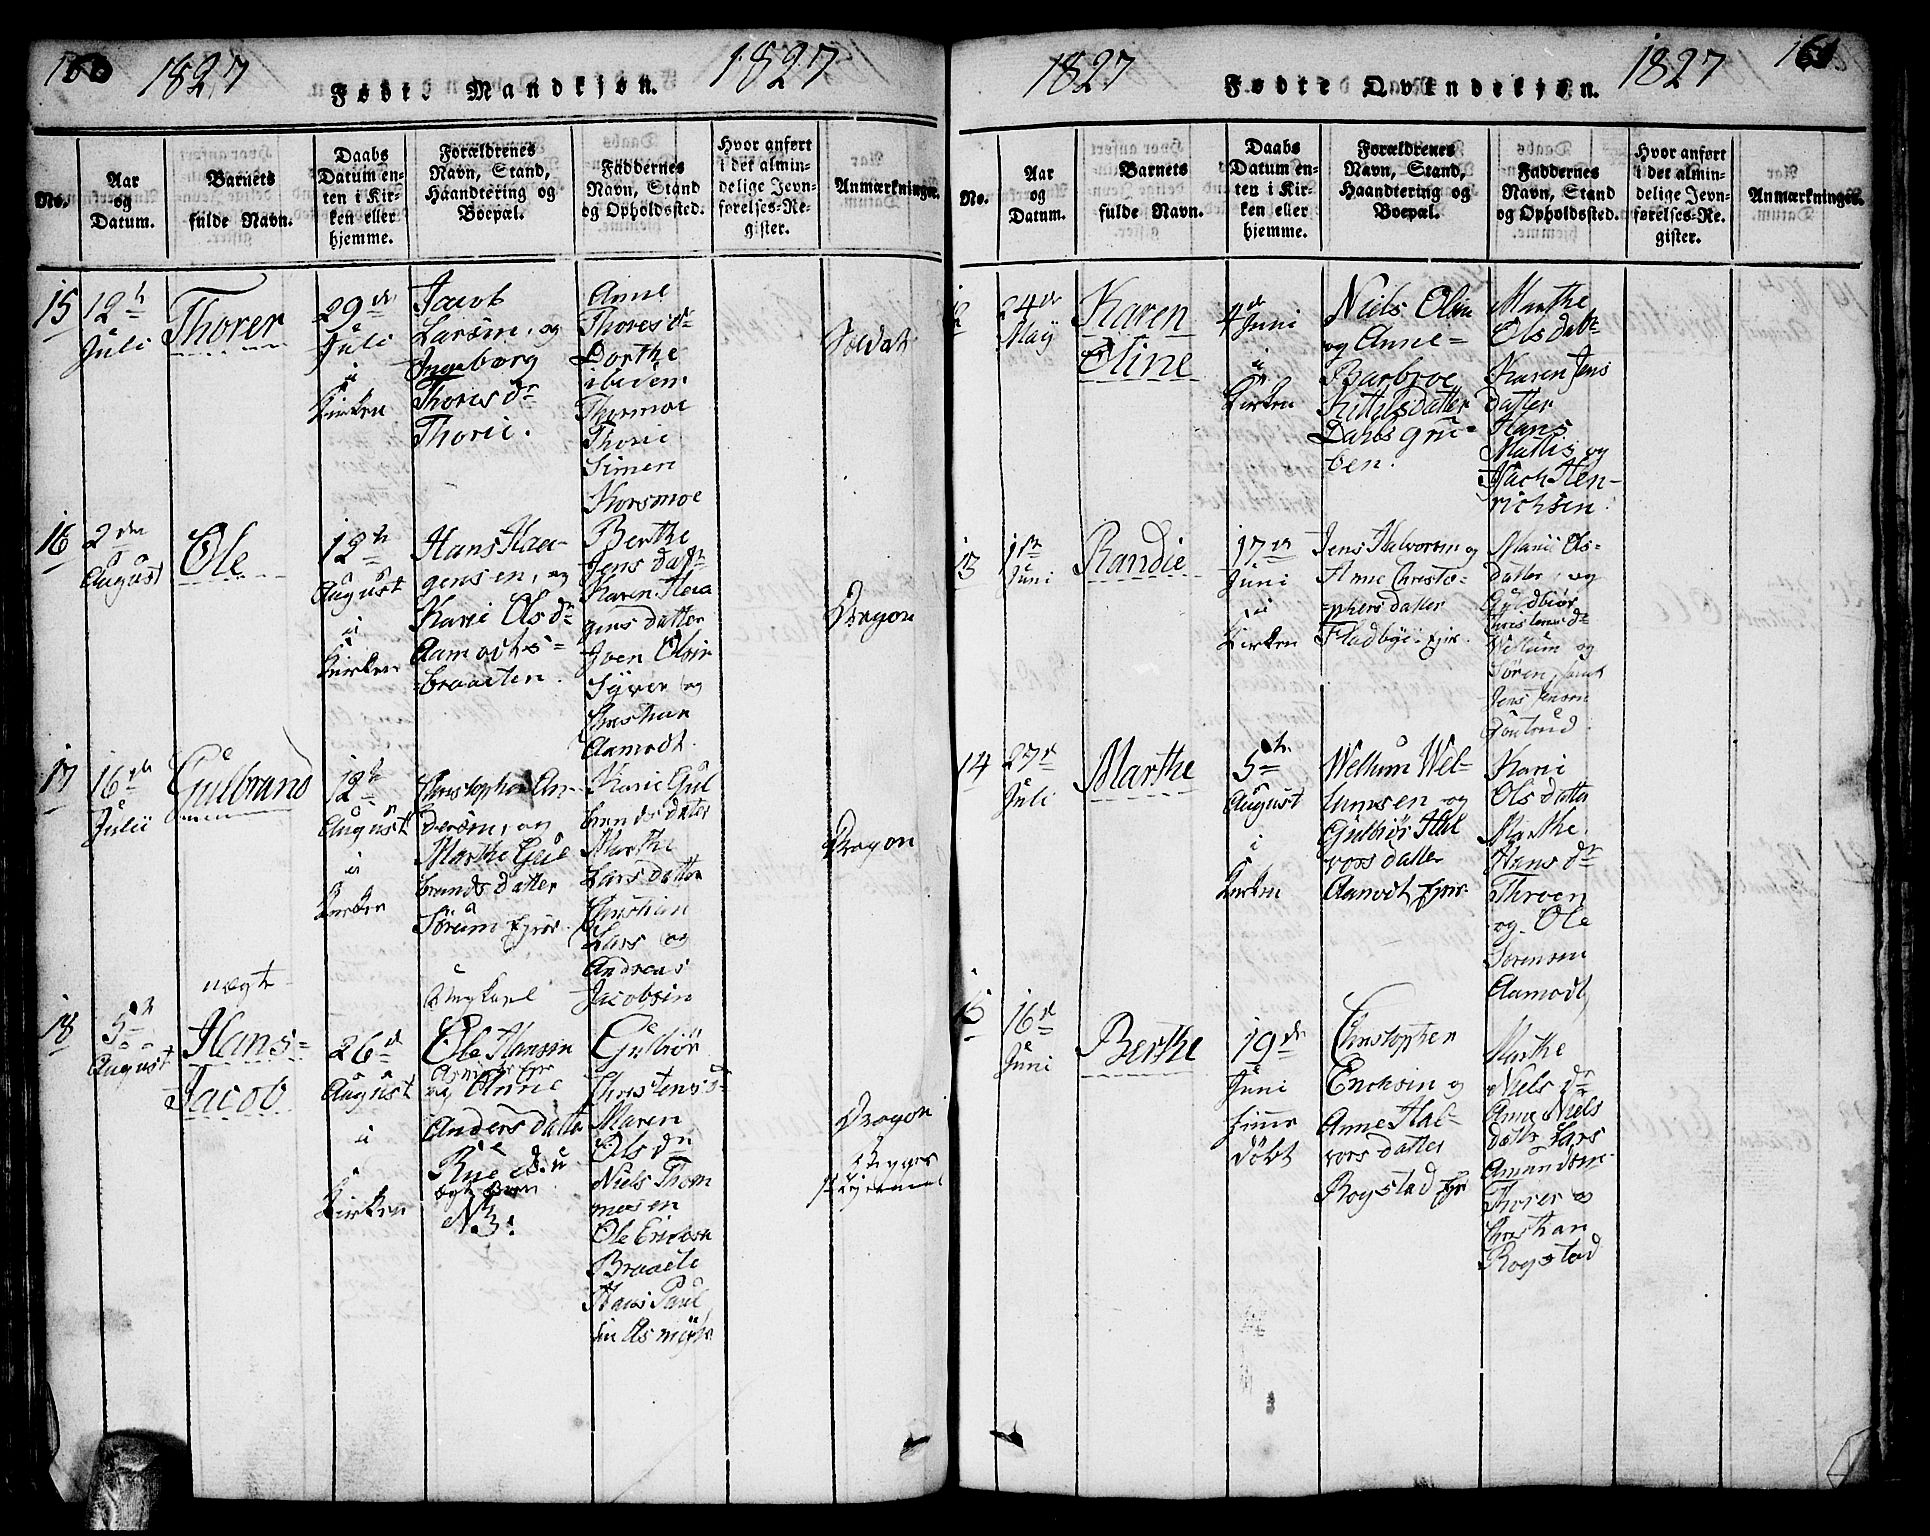 160
1827
Fødte Mandkjøn.
1827
No.
Aar
og
Datum.
Barnets
fulde Navn.
Daabs
Datum en-
ten i Kir-
ken eller
hjemme.
Forældrenes
Navn, Stand,
Haandtering og
Boepæl.
Faddernes
Navn, Stand
og Opholdssted.
Hvor anført
i det almin-
delige Jevn-
førelses-Re-
gister.
Anmærkninger.
15
12te
Juli
Thorer
29de
Juli
i
Kirken
Jacob
Larsen, og
Ingeborg
Thoresdr
Thorie.
Anne
Thoresdr
Dorthe
ibidem
Thormoe
Thorie
Simen
Korsmoe
Soldat
16
2den
August
Ole
12te
August
i
Kirken
Hans Haa-
gensen, og
Karie Olsdr
Aamodts-
braaeten.
Berthe
Jens datr
Karen Haa
gens datter
Iven Olsen
Syver og
Christian
Aamodt.
Dragon
17
16de
Julii
Gulbrand
12te
August
i
Kirken
Christopher An-
dersen, og
Marthe Gul
brands datter
Sørum Ejer.
Karie Gul
brands datter
Marthe
Lars datter
Christian
Lars og
Andreas
Jacobsen
Dragon
18
5te
August
uægte
Hans-
Jacob
26de
August
i
Kirken
Ungkarl
Ole Hansen
og Anne
Anders datter
Rue
N 3.
Gulbiør
Christensdr
Maren
Olsdr
Niels Thom
mesen
Ole Ericksen
Braaete
Hans Paul
sen Asmyhr
Dragon
161
1827
Fødte Qvindekjøn.
1827
No.
Aar
og
Datum.
Barnets
fulde Navn.
Daabs
Datum en-
ten i Kir-
ken eller
hjemme.
Forældrenes
Navn, Stand,
Haandtering og
Boepæl.
Faddernes
Navn, Stand
og Opholdssted.
Hvor anført
i det almin-
delige Jevn-
førelses-Re-
gister.
Anmærkninger.
12
24de
May
Karen
Oline
4de
Juni
i
Kirken
Niels Olsen
og Anne-
Barbroe
Kittelsdatter
Dahlsgru-
ben.
Marthe
Olsdatr
Karen Jens
datter
Hans
Mathis og
Zach Hen-
richsen.
13
1ste
Juni
Randie
17de
Juni
i
Kirken
Jens Halvorsen og
Anne Christo-
phersdatter
Fladbye. Ejer.
Marie Ols-
datter, og
Guldbiør
Christensdr
Wellum og
Søren, samt
Jens Jensen
14
27de
Juli
Marthe
5te
August
i
Kirken
Wellum Wel-
lumsen og
Gulbiør Hal
vors datter
Aamodt Ejer.
Karie
Ols datter
Marthe
Hansdr
Throen
og Ole
Sørensen
Aamodt
15
16de
Juni
Berthe
19de
Juni
hjemme
døbt
Christopher
Erichsen og
Anne Hal-
vors datter
Rogstad Ejer
Marthe
Nielsdr
Anne Niels
datr Lars
Amundsen
Thorer og
Christian
Rogstad